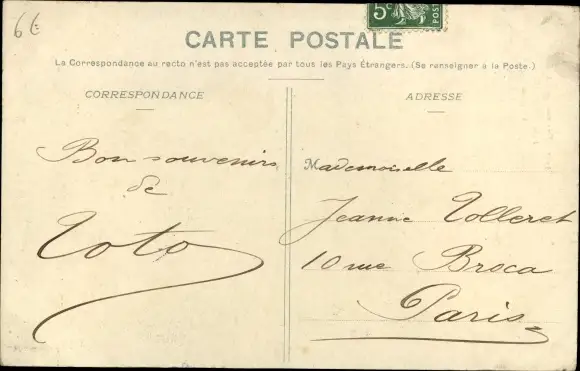 6€
5c
POSTES
CARTE POSTALE
La Correspondance au recto n'est pas acceptée par tous les Pays Étrangers. (Se renseigner à la Poste.)
CORRESPONDANCE
Bon souvenirs
de
Toto
ADRESSE
Mademoiselle
Jeanne Tolleret
10 rue Broca
Paris